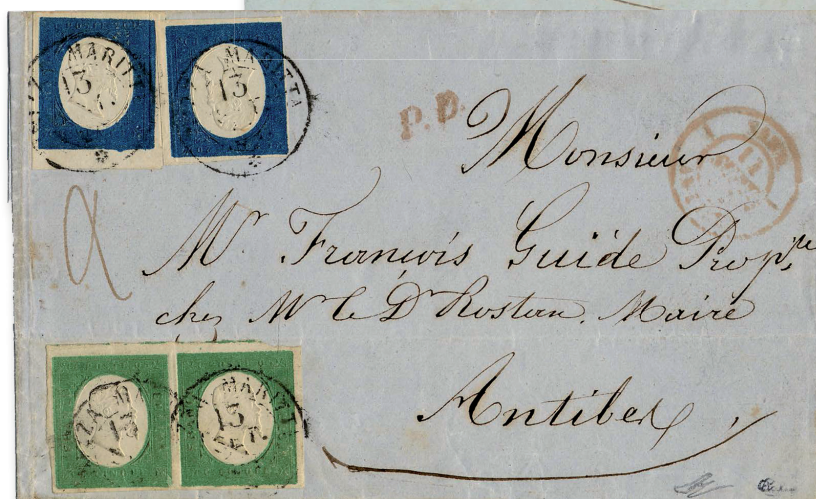 NIZZA MARITTA
13
NIZZA MARITTA
13
P.P.
Monsieur
Mr François Guide Propre
chez Mr le Dr Rostan, Maire
Antibes
NIZZA MARITTA
13
NIZZA MARITTA
13